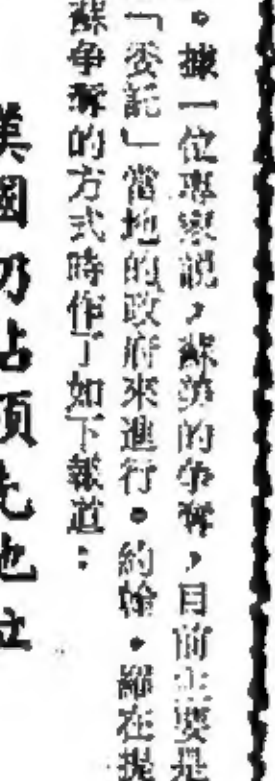 。據一位專家說，蘇美的争奪，目前主要是
「委託」當地的政府來進行。約翰·羅在提
蘇争奪的方式時作了如下報道：
美國仍占領先地位